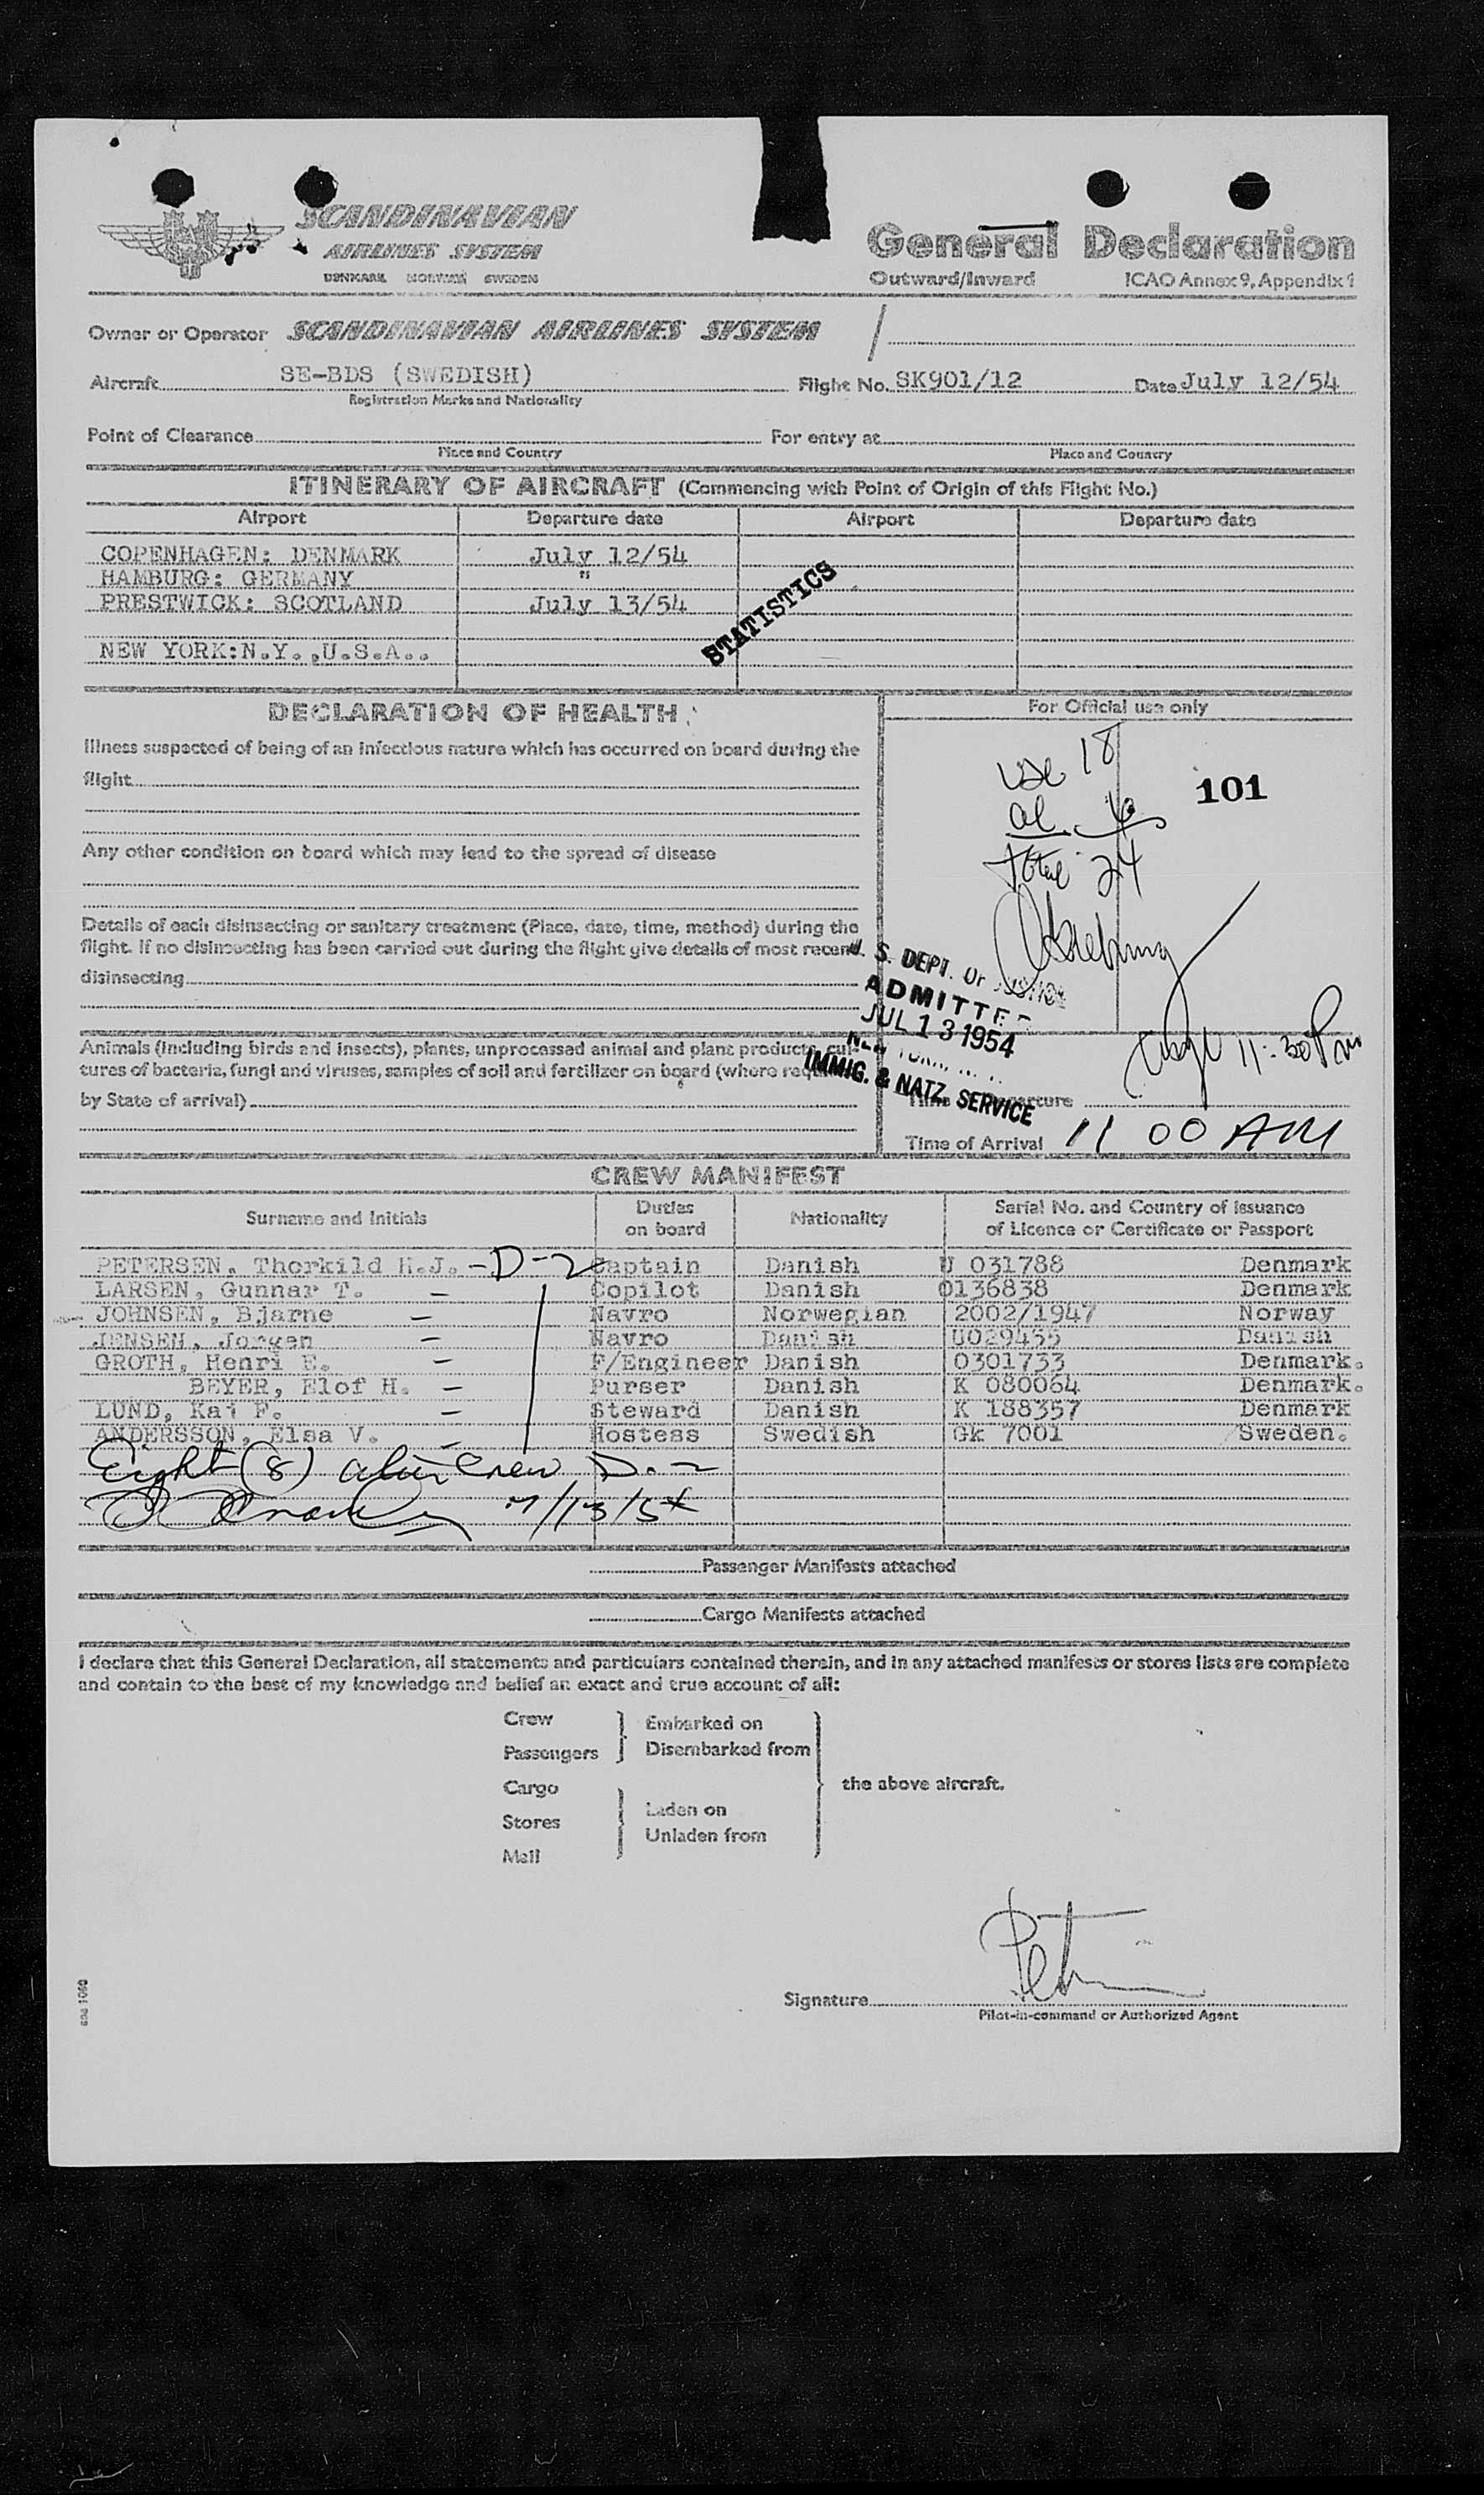 SCANDINAVIAN
AIRLINES SYSTEM
DENMARK NORWAY SWEDEN
General Declaration
Outward/Inward ICAO Annex 9, Appendix 1
Owner or Operator SCANDINAVIAN AIRLINES SYSTEM
Aircraft SE-BDS (SWEDISH) Flight No. SK901/12 Date July 12/54
Registration Marks and Nationality
Point of Clearance For entry at
Place and Country Place and Country
ITINERARY OF AIRCRAFT (Commencing with Point of Origin of this Flight No.)
Airport Departure date Airport Departure date
COPENHAGEN: DENMARK July 12/54
HAMBURG: GERMANY "
PRESTWICK: SCOTLAND July 13/54
NEW YORK:N.Y.,U.S.A..
STATISTICS
DECLARATION OF HEALTH
Illness suspected of being of an infectious nature which has occurred on board during the
flight
Any other condition on board which may lead to the spread of disease
Details of each disinsecting or sanitary treatment (Place, date, time, method) during the
flight. If no disinsecting has been carried out during the flight give details of most recent
disinsecting
Animals (including birds and insects), plants, unprocessed animal and plant products, cul-
tures of bacteria, fungi and viruses, samples of soil and fertilizer on board (where
by State of arrival)
For Official use only
18
101
al. 6
total 24
U. S. DEPT. OF JUSTICE
ADMITTED
JUL 13 1954
NEW YORK, N. Y.
IMMIG. & NATZ. SERVICE
11:30 PM
Time of Departure
Time of Arrival 11 00 AM
CREW MANIFEST
Surname and Initials Duties on board Nationality Serial No. and Country of Issuance of Licence or Certificate or Passport
PETERSEN, Thorkild H.J. - D-2 Captain Danish U 031788 Denmark
LARSEN, Gunnar T. - Copilot Danish 0136838 Denmark
JOHNSEN, Bjarne - Navro Norwegian 2002/1947 Norway
JENSEN, Jorgen - Navro Danish U029435 Danish
GROTH, Henri E. - F/Engineer Danish 0301733 Denmark.
BEYER, Elof H. - Purser Danish K 080064 Denmark.
LUND, Kai F. - Steward Danish K 188357 Denmark
ANDERSSON, Elsa V. - Hostess Swedish Gk 7001 Sweden.
Eight (8) alien Crew D-2
7/13/54
Passenger Manifests attached
Cargo Manifests attached
I declare that this General Declaration, all statements and particulars contained therein, and in any attached manifests or stores lists are complete
and contain to the best of my knowledge and belief an exact and true account of all:
Crew
Passengers
Embarked on
Disembarked from
Cargo
Stores
Mail
Laden on
Unladen from
the above aircraft.
Signature
Pilot-in-command or Authorized Agent